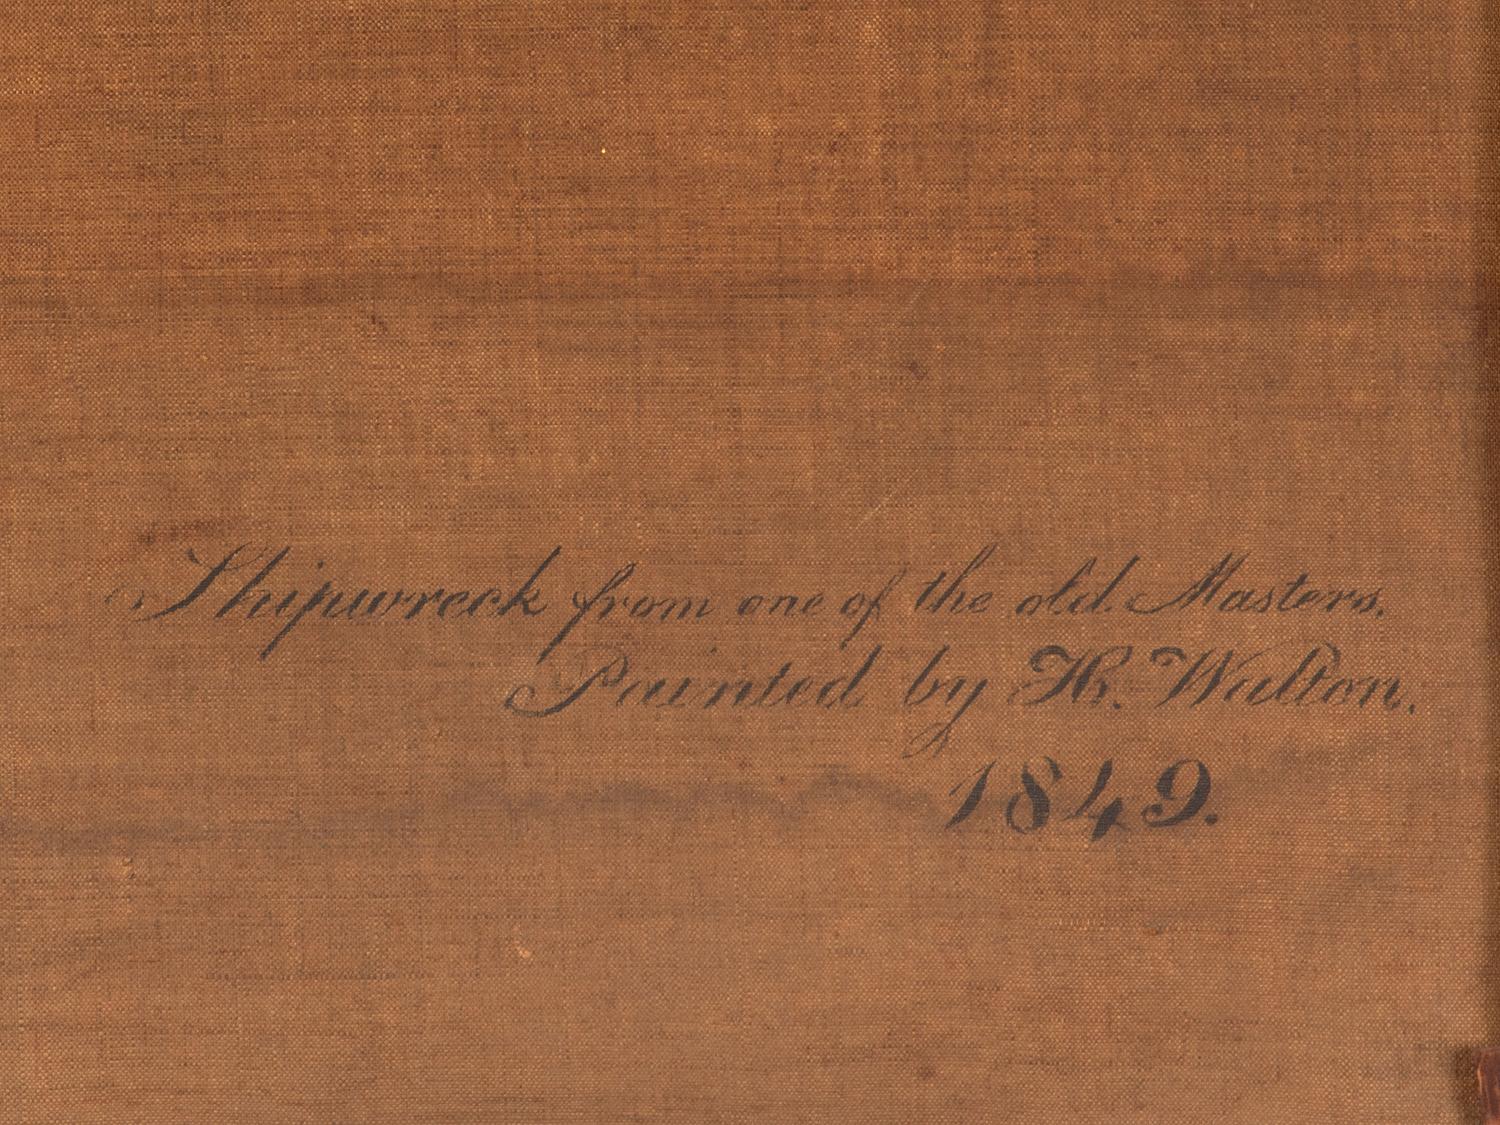 Shipwreck from one of the old Masters.
Painted by H. Walton.
1849.